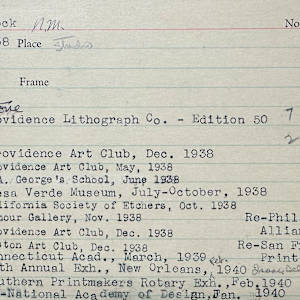 ock N.M. No
8 Place
Frame
Stone
ovidence Lithograph Co. - Edition 50 7
2
rovidence Art Club, Dec. 1938
ovidence Art Club, May, 1938
A. George's School, June 1938
esa Verde Museum, July-October, 1938
lifornia Society of Etchers, Oct. 1938
mour Gallery, Nov. 1938 Re-Phil
ovidence Art Club, Dec. 1938 Allia
ston Art Club, Dec. 1938 Re-San F
onnecticut Acad., March, 1939 Print
th Annual Exh., New Orleans, Feb. 1940
uthern Printmakers Rotary Exh., Feb. 1940
-National Academy of Design, Jan. 1940